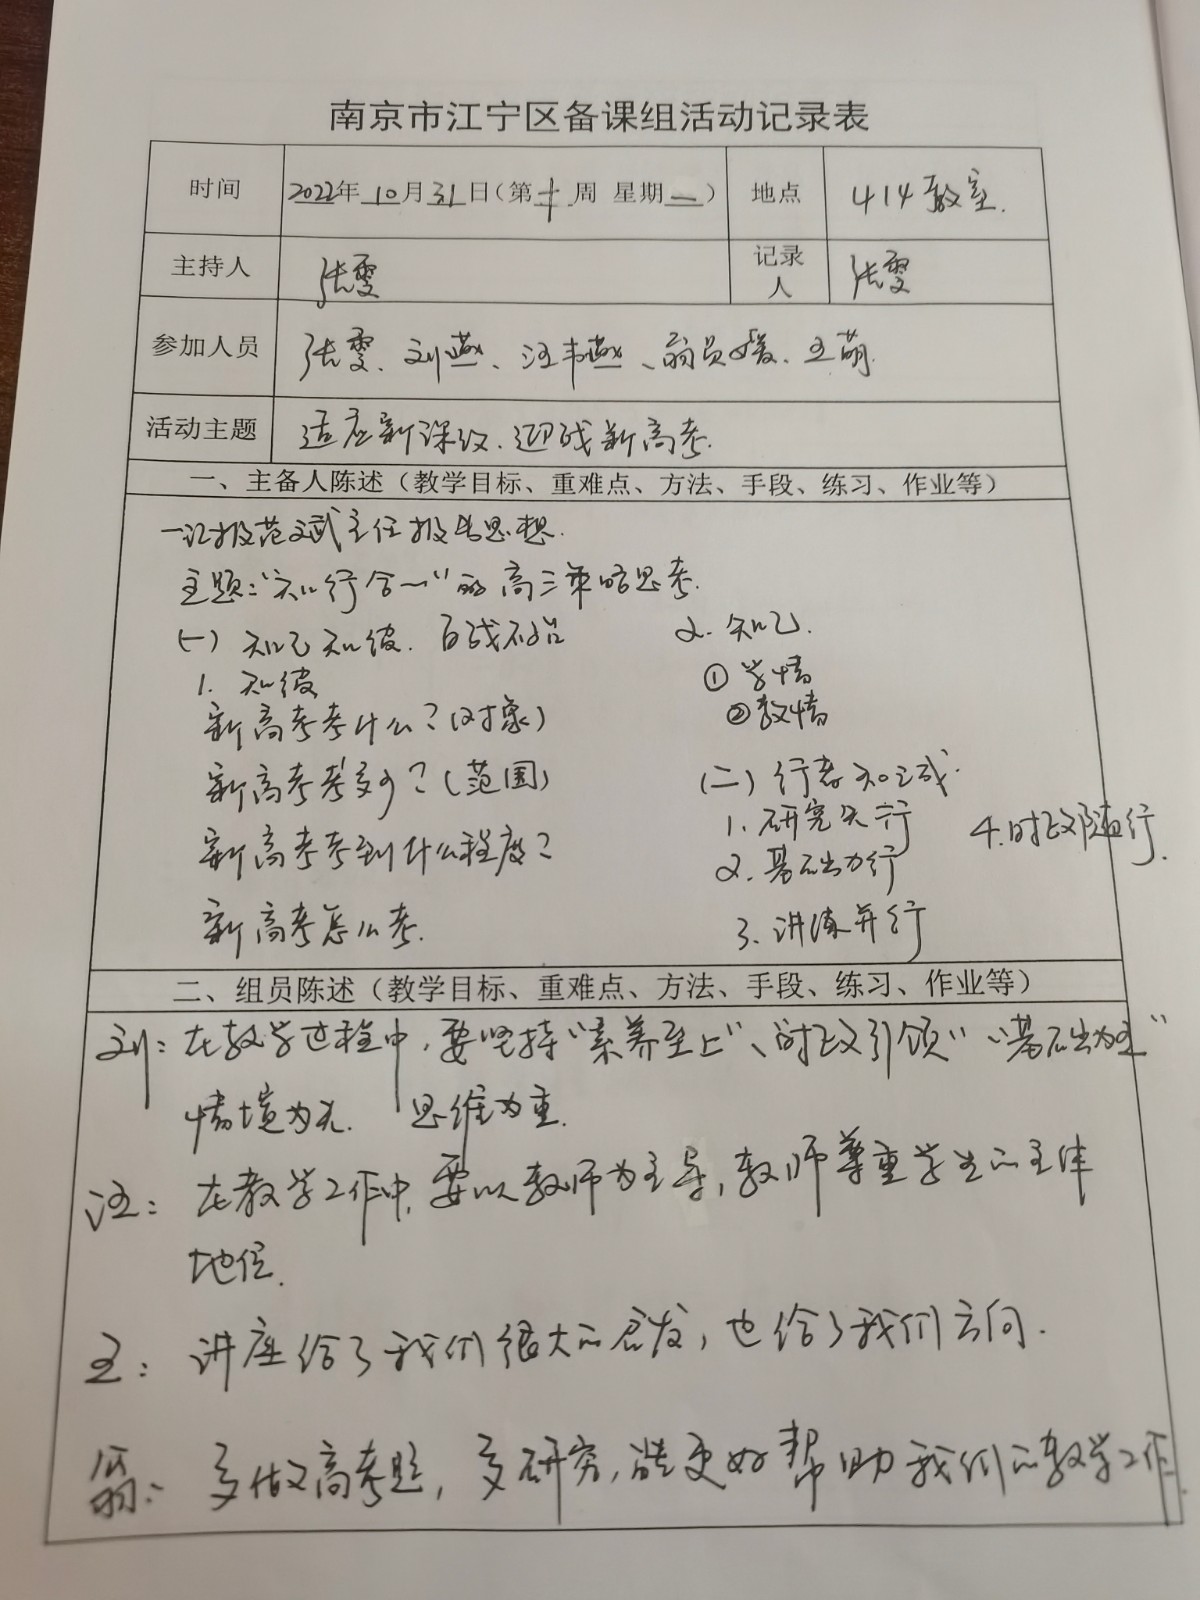 南京市江宁区备课组活动记录表
时间 2022年10月31日(第十周 星期一) 地点 414教室.
主持人 张雯 记录人 张雯
参加人员 张雯、刘燕、汪书燕、翁员媛、王萌.
活动主题 适应新课改.迎战新高考.
一、主备人陈述（教学目标、重难点、方法、手段、练习、作业等）
一汇报范文武主任报告思想.
主题:“知行合一”的高三策略思考.
(一) 知己知彼.百战不殆
1. 知彼
新高考考什么?(对象)
新高考考多少?(范围)
新高考考到什么程度?
新高考怎么考.
2. 知己.
①学情
②教情
(二)行者知之成.
1. 研究先行
2. 基础力行
3. 讲练并行
4.时政随行.
二、组员陈述（教学目标、重难点、方法、手段、练习、作业等）
刘: 在教学过程中,要坚持“素养至上”、“时政引领”“基础为主”
情境为先. 思维为重.
汪: 在教学工作中,要以教师为主导,教师尊重学生的主体
地位.
王: 讲座给了我们很大的启发,也给了我们方向.
翁: 多做高考题,多研究,能更好帮助我们的教学工作.